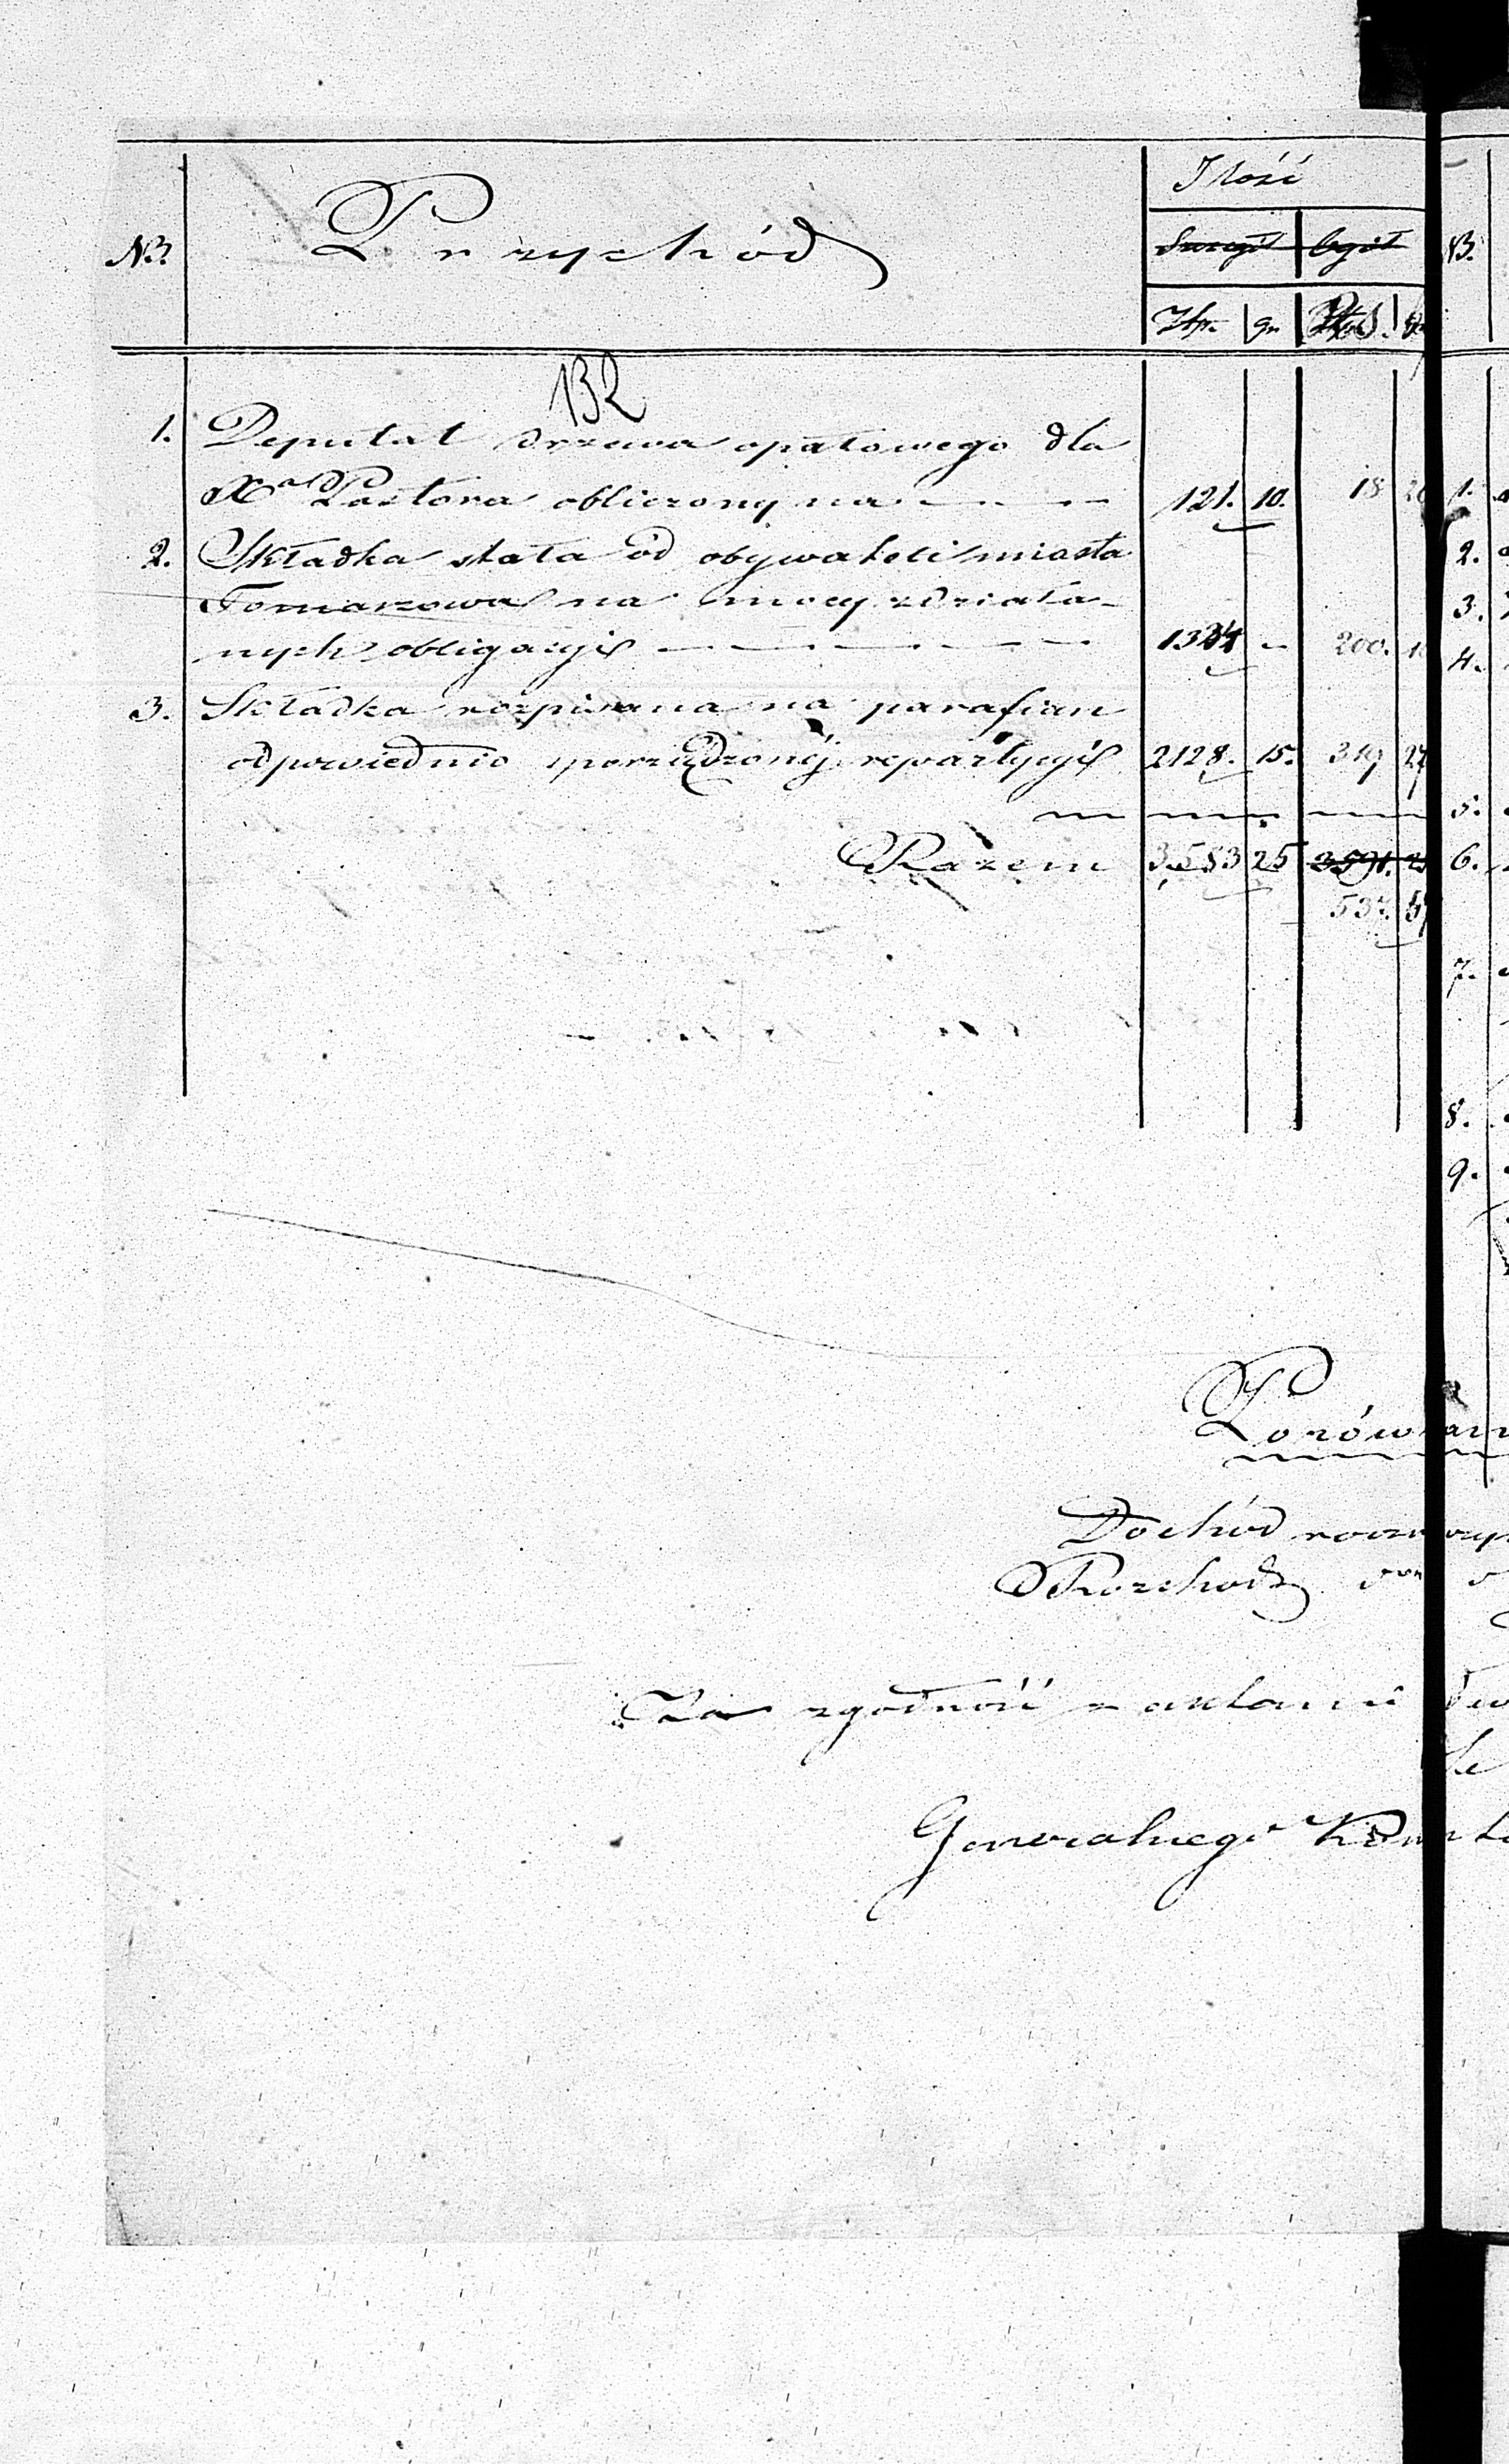 Ilość
NB. Przychód Szczegół Ogół NB.
Złp. gr
132
1. Deputat drzewa opałowego dla
Xa Pastora obliczony na — — — 121. 10. 18 1.
2. Składka stała od obywateli miasta 2.
Tomaszowa na mocy zdziała- 3.
nych obligacyi — — — — — 1334 – 200. 4.
3. Składka rozpisana na parafian
odpowiednio sporządzonéj repartycyi 2128. 15. 319 27
5.
Razem 3583 25 3591. 6.
537. 57
7.
8.
9.
Porówan
Dochód
Rozchod
Za zgodność z aktami
Generalnego